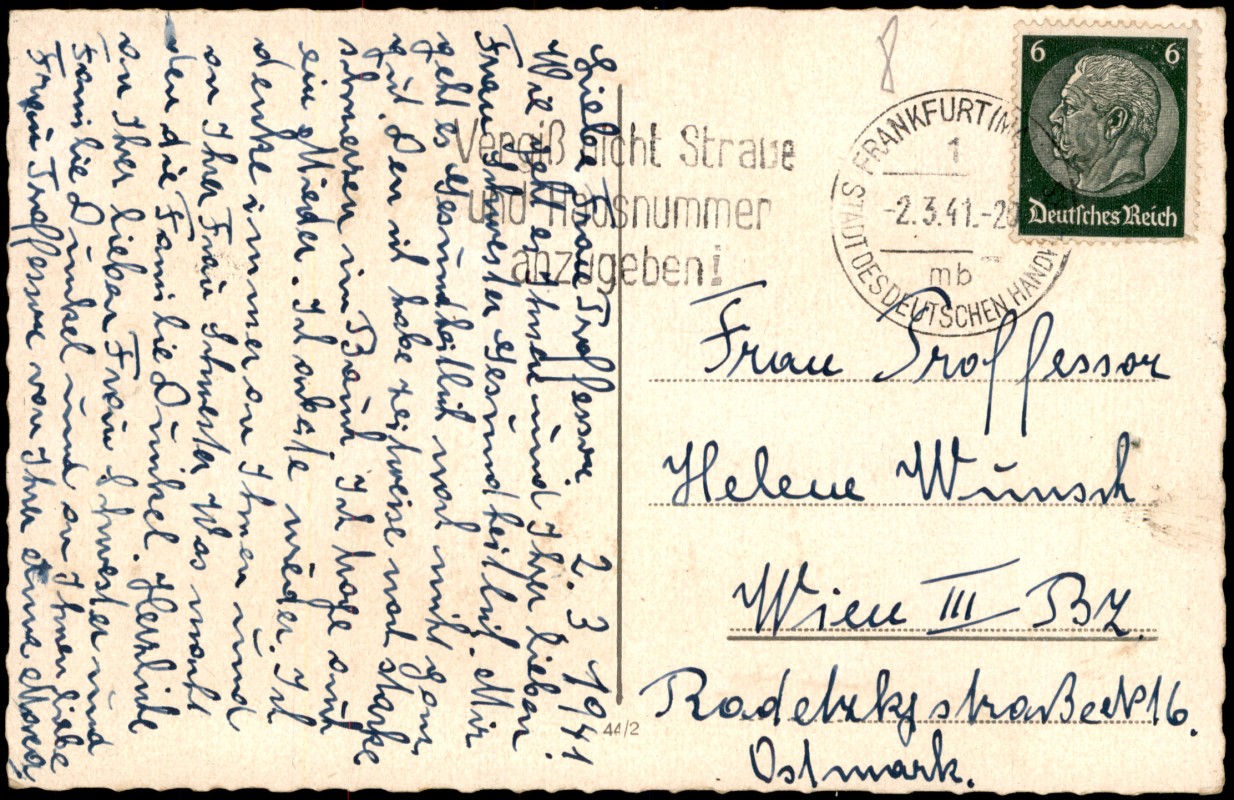 Liebe Frau Proffessor 2.3.1941
Wie geht es Ihnen und Ihrer lieben
Frau Schwester Gesundheitlich. Mir
geht es Gesundheitlich noch nicht ganz
gut. Den ich habe zeitweise noch starke
schmerzen im Bauch Ich trage auch
ein Mieder. Ich arbeite wieder. Ich
denke immer an Ihnen und
an Ihre Frau Schwester Was macht
den die Familie Dunkel. Herzliche
an Ihrer lieber Frau Schwester und
Familie Dunkel und an Ihnen liebe
Frau Proffessor von Ihrer Anna
Vergiß nicht Straße
und Hausnummer
anzugeben!
FRANKFURT (MAIN)
1
-2.3.41.-20
mb
STADT DES DEUTSCHEN HANDW
6 6
Deutsches Reich
8
Frau Proffessor
Helene Wunsch
Wien III BZ.
Radetzkystraße No 16.
Ostmark.
44/2